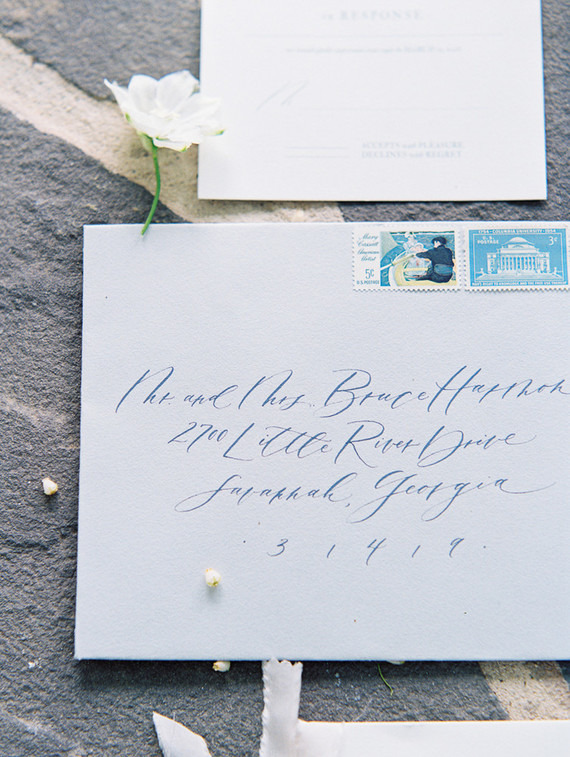 IN RESPONSE
ACCEPTS with PLEASURE
DECLINES with REGRET
Mary
Cassatt
American
Artist
5¢
U.S. POSTAGE
1754 · COLUMBIA UNIVERSITY · 1954
U.S. POSTAGE
3¢
MAN'S RIGHT TO KNOWLEDGE AND THE FREE USE THEREOF
Mr. and Mrs. Bruce Harmon
2700 Little River Drive
Savannah, Georgia
· 3 1 4 1 9 ·